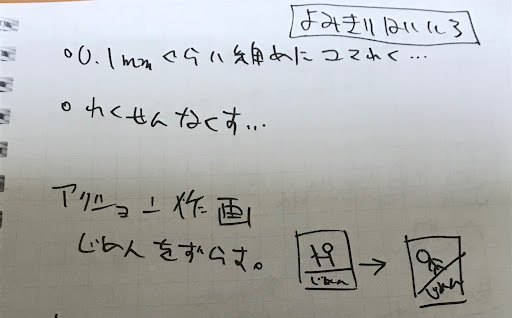 よみきりはいいろ
○0.1mmくらい細めにコマわく…
○わくせんなくす…
アクション作画
じめんをずらす。
じめん → じめん